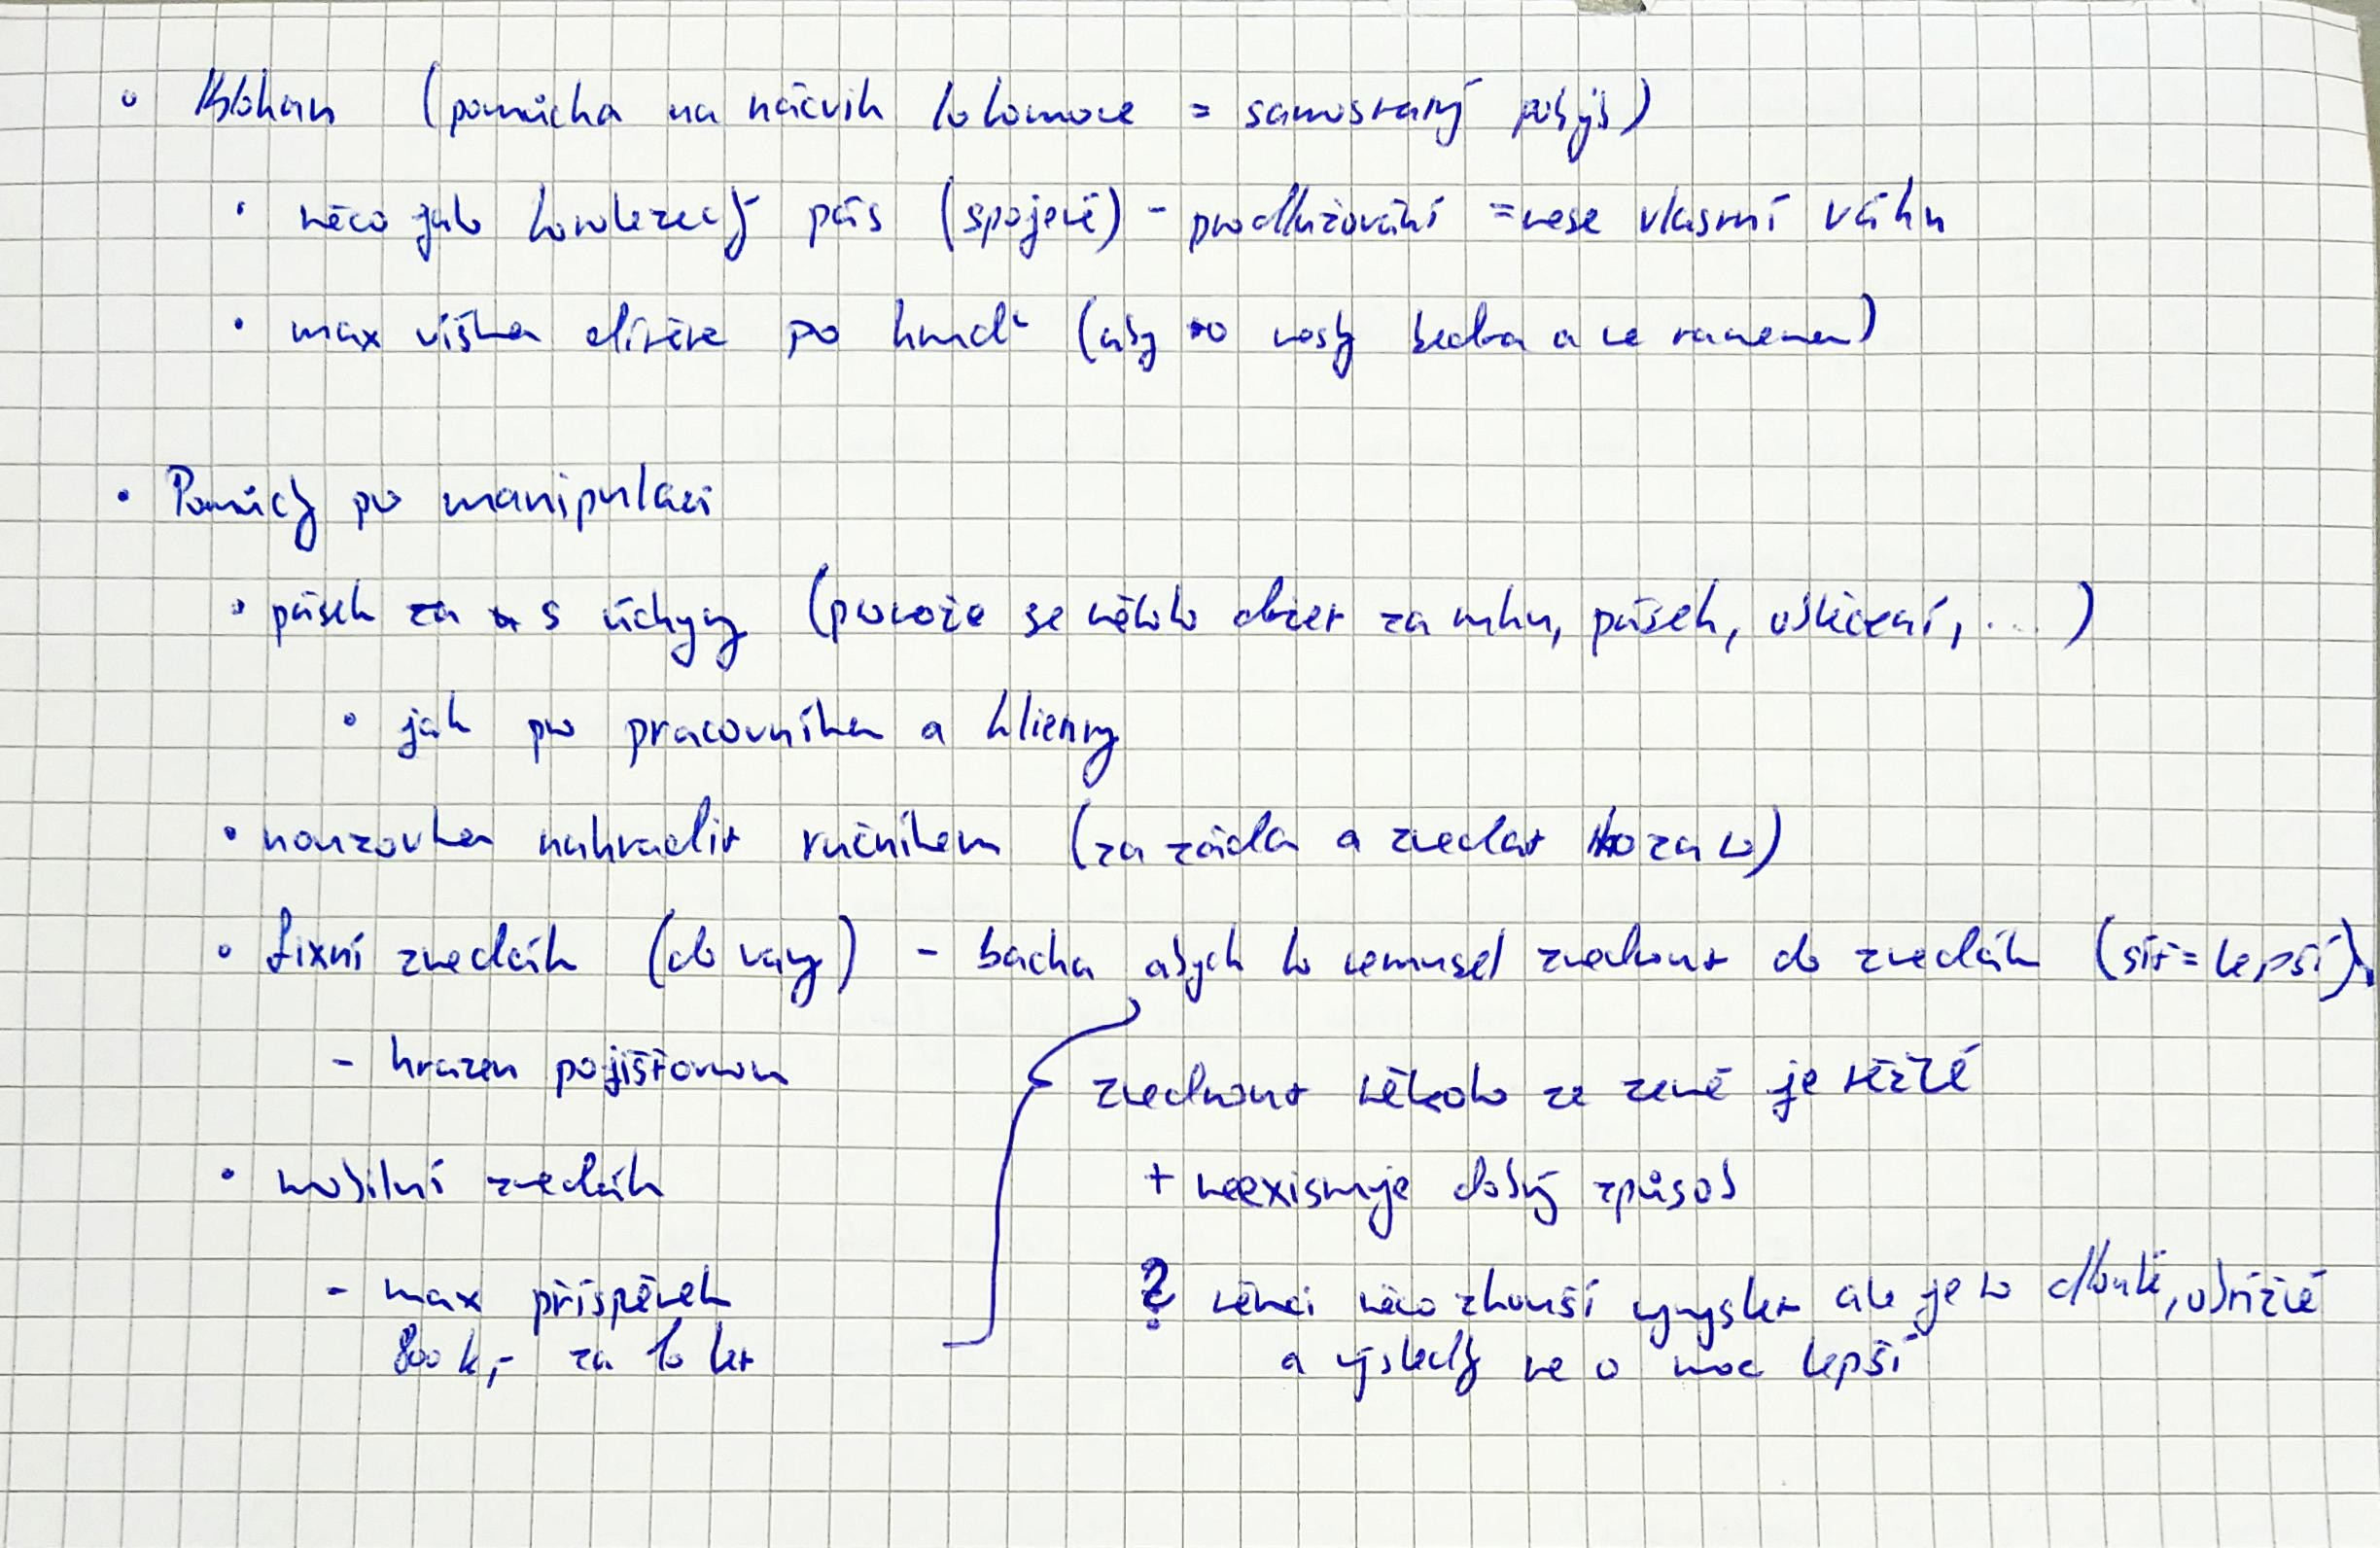 • (pomůcka na nácvik lokomoce = samostatný pohyb)
• něco jako horolezecký pás (spojené) - prodlužování = nese vlastní váhu
• max výška dítěte po hruď (aby to nesly bedra a ne ramena)
• Pomůcky po manipulaci
• pásek za s úchyty (protože se někoho držet za ruku, pásek, oblečení, ...)
• jak pro pracovníka a klienty
• nouzovka nahradit ručníkem (za záda a zvedat ho za to)
• fixní zvedák (do vany) - bacha abych ho nemusel zvednout do zvedák (síť = lepší)
- hrazen pojišťovnou
zvednout někoho ze země je těžké
• mobilní zvedák
+ neexistuje dobrý způsob
- max příspěvek
800k,- za 10 let
? někteří něco zkouší vymyslet ale je to dlouhé, obtížné
a výsledky ne o moc lepší